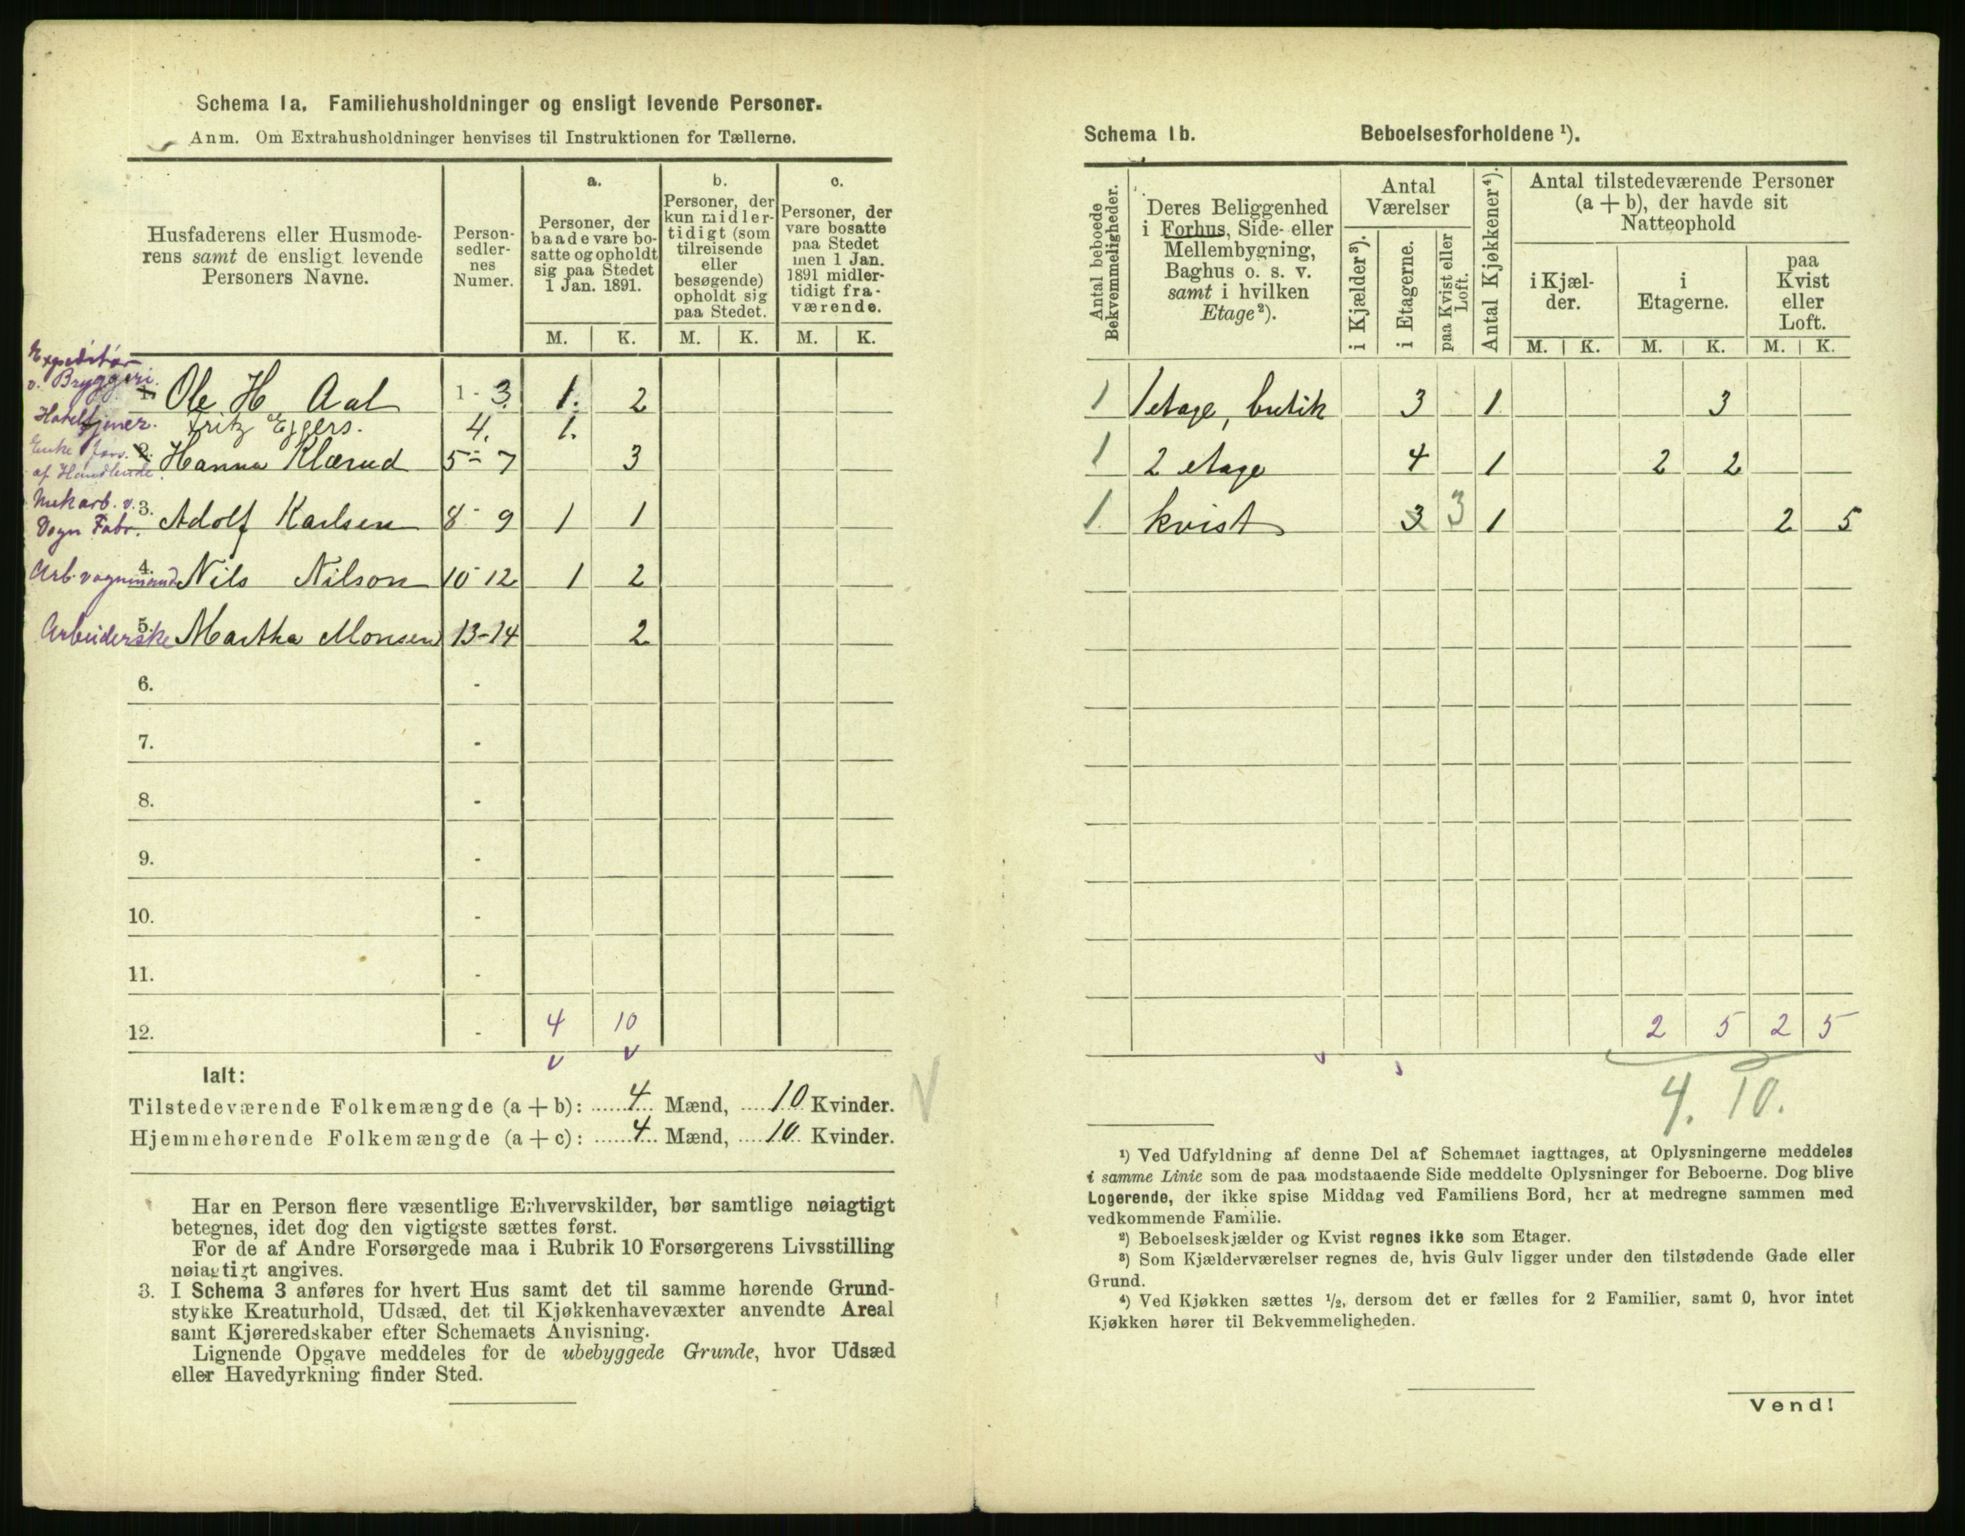 Schema 1a. Familiehusholdninger og ensligt levende Personer.
Anm. Om Extrahusholdninger henvises til Instruktionen for Tællerne.
Husfaderens eller Husmode-
rens samt de ensligt levende
Personers Navne.
Person-
sedler-
nes
Numer.
a.
Personer, der
baade vare bo-
satte og opholdt
sig paa Stedet
1 Jan. 1891.
b.
Personer, der
kun midler-
tidigt (som
tilreisende
eller
besøgende)
opholdt sig
paa Stedet.
c.
Personer, der
vare bosatte
paa Stedet
men 1 Jan.
1891 midler-
tidigt fra-
værende.
M. K. M. K. M. K.
Expeditør
v. Bryggeri.
1. Ole H Aal 1 - 3. 1. 2
Hoteltjener. Fritz Eggers. 4. 1.
Enke fors.
af Handlende.
2. Hanna Klærud 5 - 7 3
Mek arb. v.
Vogn Fabr.
3. Adolf Karlsen 8 - 9 1 1
Arb. vognmand 4. Nils Nilson 10 - 12 1 2
Arbeiderske 5. Martha Monsen 13 - 14 2
6. -
7. -
8. -
9. -
10. -
11. -
12. - 4 10
Ialt:
Tilstedeværende Folkemængde (a + b): 4 Mænd, 10 Kvinder.
Hjemmehørende Folkemængde (a + c): 4 Mænd, 10 Kvinder.
Har en Person flere væsentlige Erhvervskilder, bør samtlige nøiagtigt
betegnes, idet dog den vigtigste sættes først.
For de af Andre Forsørgede maa i Rubrik 10 Forsørgerens Livsstilling
nøiagtigt angives.
3. I Schema 3 anføres for hvert Hus samt det til samme hørende Grund-
stykke Kreaturhold, Udsæd, det til Kjøkkenhavevæxter anvendte Areal
samt Kjøreredskaber efter Schemaets Anvisning.
Lignende Opgave meddeles for de ubebyggede Grunde, hvor Udsæd
eller Havedyrkning finder Sted.
Schema 1b. Beboelsesforholdene ¹).
Antal beboede
Bekvemmeligheder.
Deres Beliggenhed
i Forhus, Side- eller
Mellembygning,
Baghus o. s. v.
samt i hvilken
Etage²).
Antal
Værelser
i Kjælder ³).
i Etagerne.
paa Kvist eller
Loft.
Antal Kjøkkener⁴).
Antal tilstedeværende Personer
(a + b), der havde sit
Natteophold
i Kjæl-
der.
i
Etagerne.
paa
Kvist
eller
Loft.
M. K. M. K. M. K.
1 1 etage, butik 3 1 3
1 2 etage 4 1 2 2
1. kvist 3 3 1 2 5
2 5 2 5
4. 10.
¹) Ved Udfyldning af denne Del af Schemaet iagttages, at Oplysningerne meddeles
i samme Linie som de paa modstaaende Side meddelte Oplysninger for Beboerne. Dog blive
Logerende, der ikke spise Middag ved Familiens Bord, her at medregne sammen med
vedkommende Familie.
²) Beboelseskjælder og Kvist regnes ikke som Etager.
³) Som Kjælderværelser regnes de, hvis Gulv ligger under den tilstødende Gade eller
Grund.
⁴) Ved Kjøkken sættes ½, dersom det er fælles for 2 Familier, samt 0, hvor intet
Kjøkken hører til Bekvemmeligheden.
Vend!